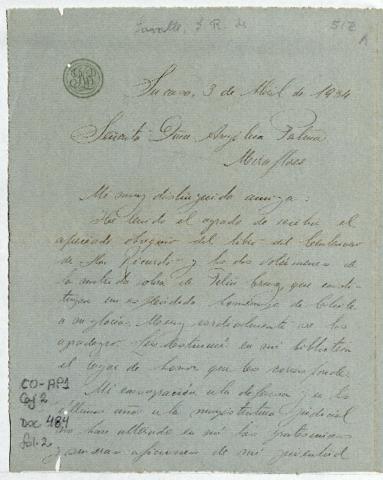 Lavalle, J. R. de
512
A
Sucasa, 3 de Abril de 1934
Señorita Dña Angélica Palma
Miraflores
Mi muy distinguida amiga:
He tenido el agrado de recibir el
apreciado obsequio del libro del Centenario
de Don Ricardo y los dos volúmenes de
la nutrida obra de Feliú Cruz, que consti-
tuyen un espléndido homenaje de Chile
a su gloria. Muy cordialmente se los
agradezco. Les destinaré en mi biblioteca
el lugar de honor que les corresponde.
Mi consagración a la defensa y en los
últimos años a la magistratura judicial
no han alterado en mí las
y sinceras aficiones de mi juventud
CO-AP1
Caj 2
Doc 484
fol. 2